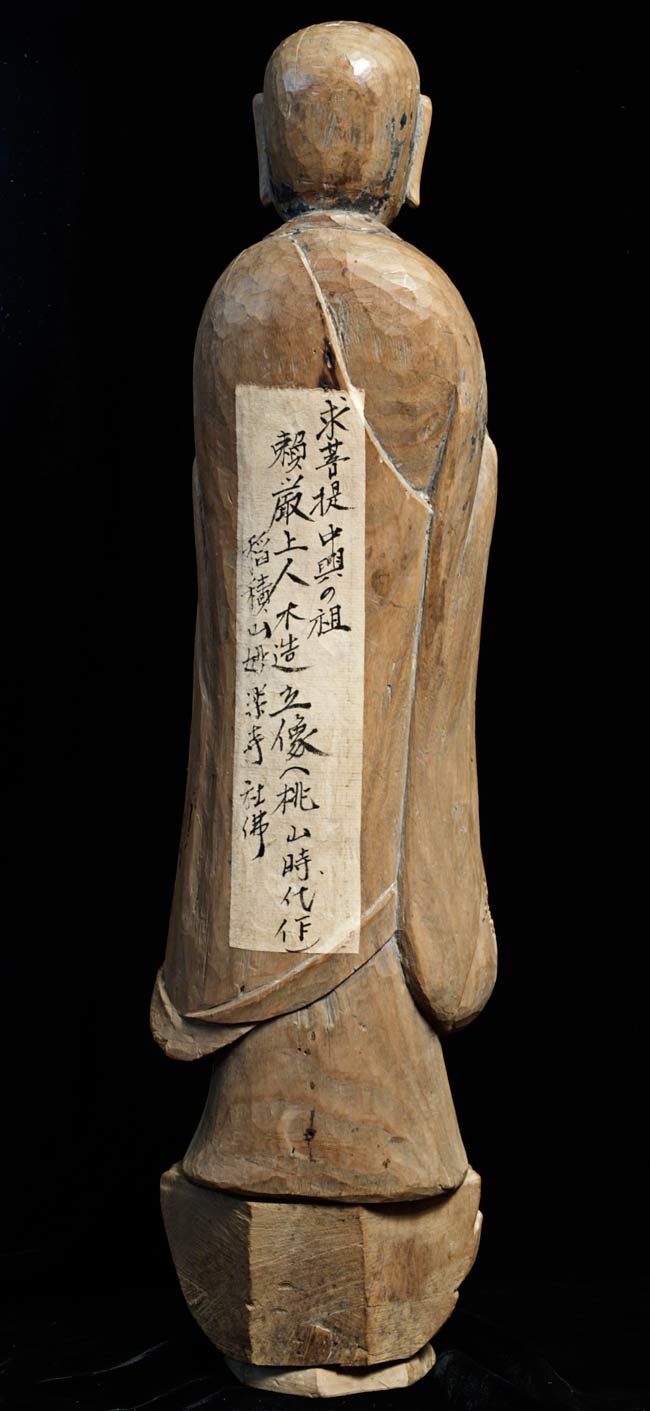 求菩提中興の祖
賴厳上人木造立像(桃山時代作)
稲積山妙楽寺社佛